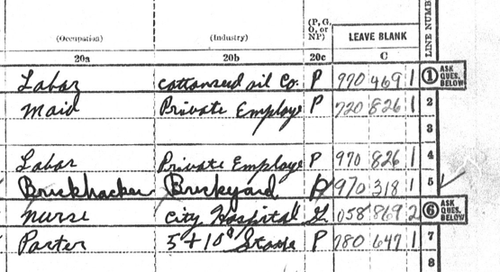 (Occupation) (Industry) (P, G, O, or NP) LEAVE BLANK LINE NUMB
20a 20b 20c C
Labor cottonseed oil Co. P 970 469 1 1 ASK QUES. BELOW
Maid Private Employe P 720 826 1 2
3
Labor Private Employe P 970 826 1 4
Brickhacker Brickyard P 970 318 1 5
nurse City Hospital G 058 869 2 6 ASK QUES. BELOW
Porter 5 + 10¢ Store P 780 647 1 7
8